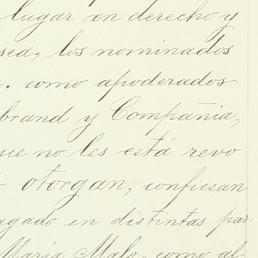 lugar en derecho y
sea, los nominados
como apoderados
brand y Compañia,
que no les está revo
otorgan, confiesan
agado en distintas par-
Maria Malo, como al-